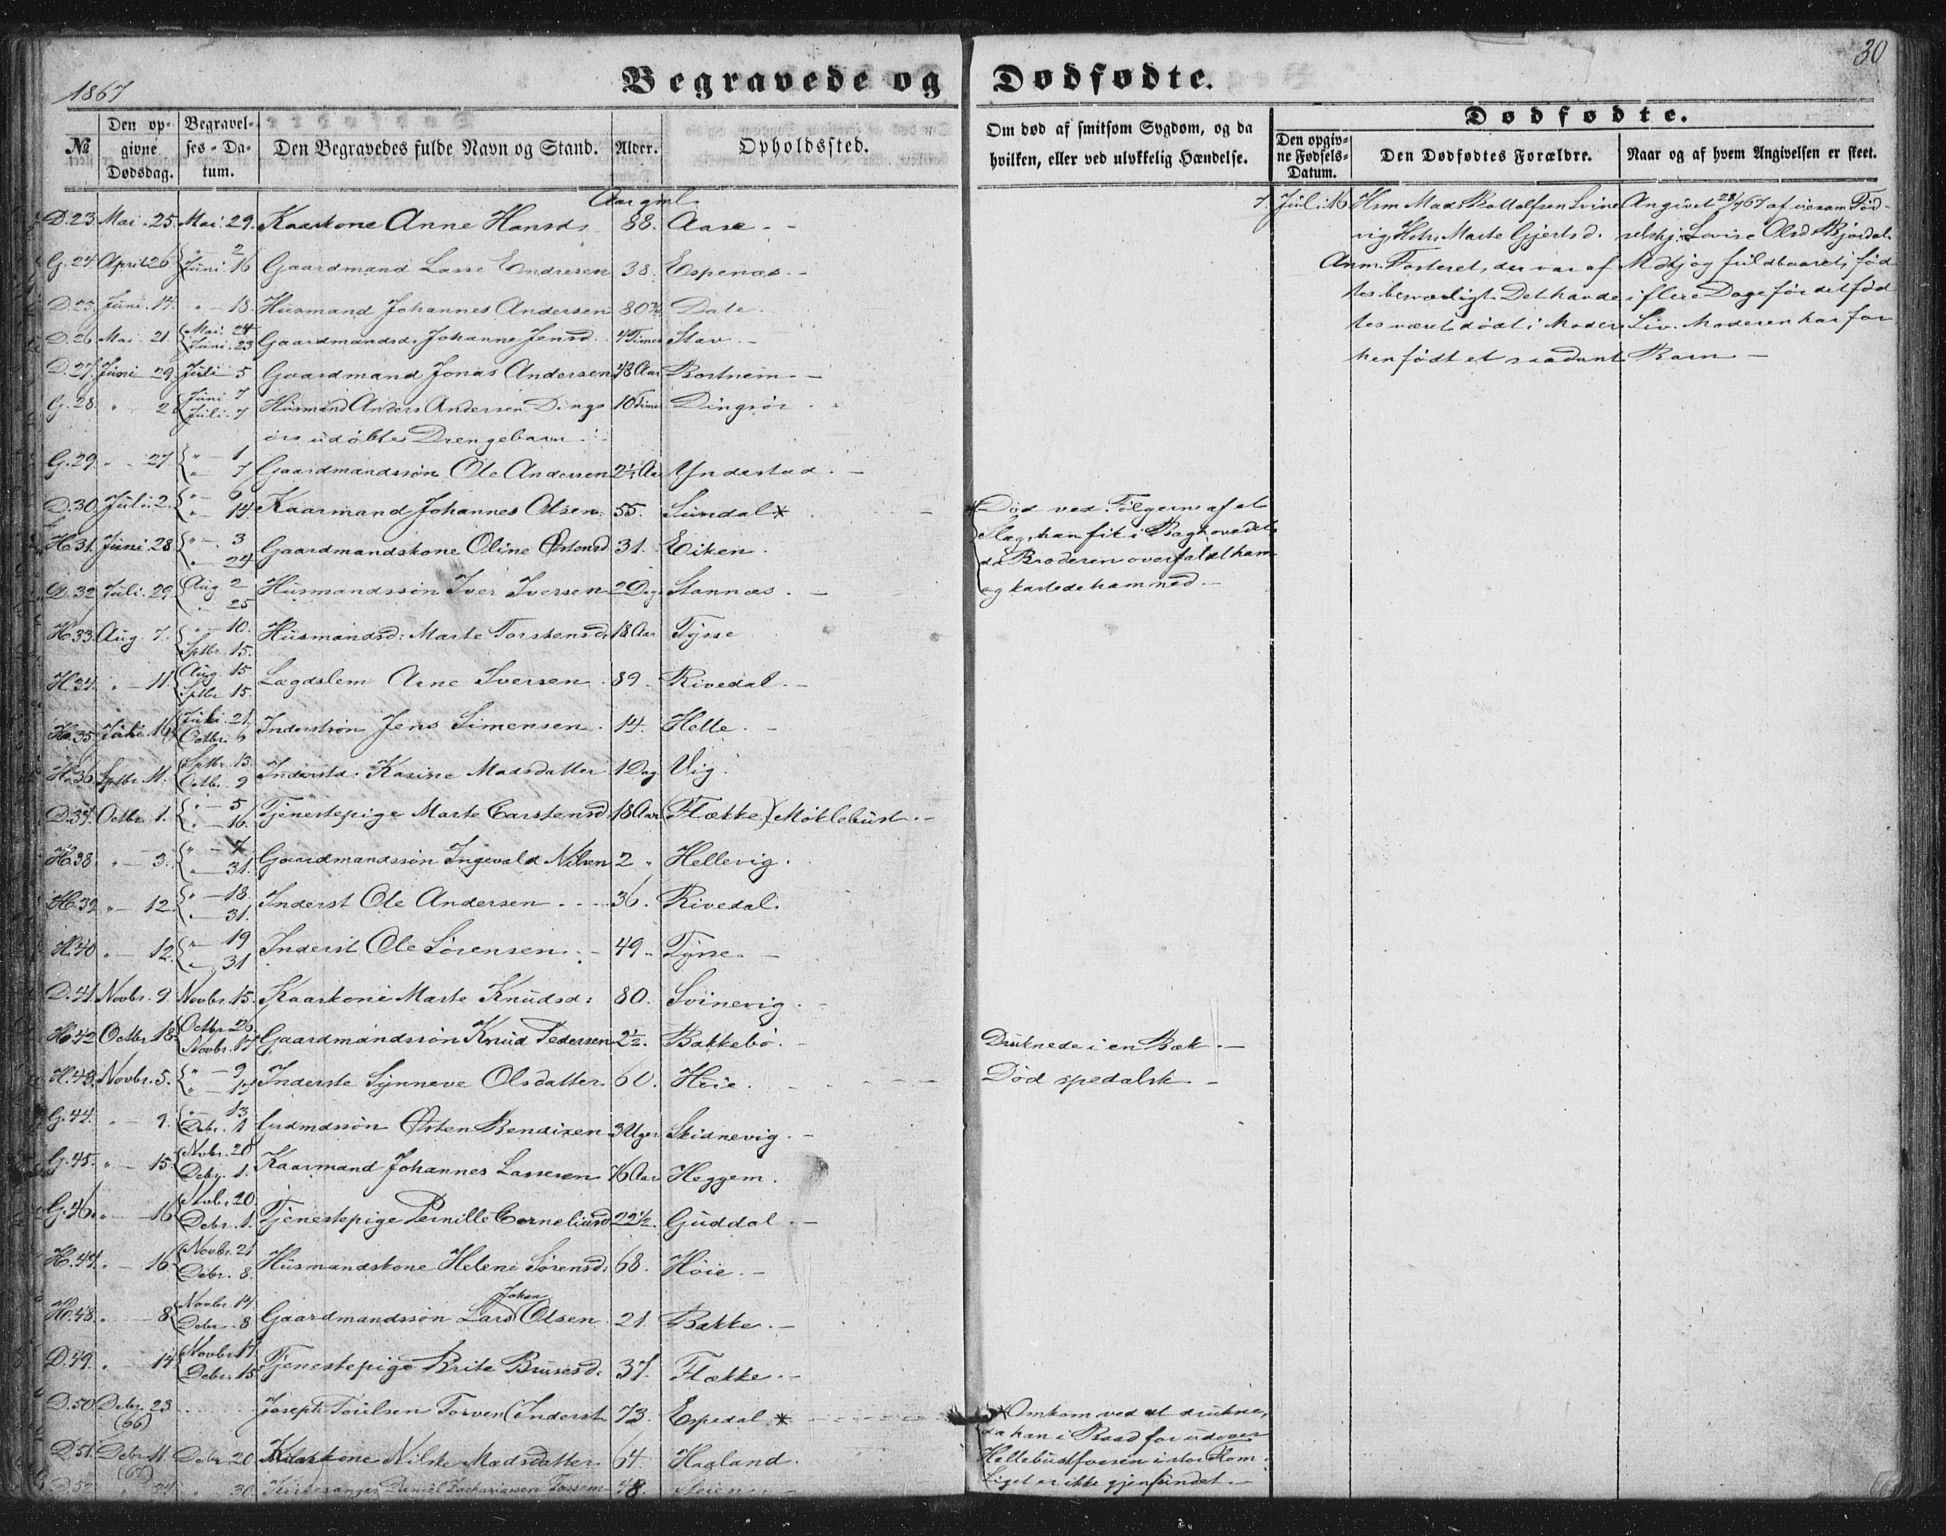 1867
30
Begravede og Dødfødte.
№ | Den opgivne Dødsdag. | Begravelses-Datum. | Den Begravedes fulde Navn og Stand. | Alder. | Opholdssted.
Om død af smitsom Sygdom, og da hvilken, eller ved ulykkelig Hændelse.
Dødfødte.
Den opgivne Fødsels-Datum. | Den Dødfødtes Forældre. | Naar og af hvem Angivelsen er skeet.
Aar gml.
D. 23. Mai. 25. Mai. 29. Kaarkone Anne Hansd. 88. Aase.
G. 24. April 26 Juni 2 16 Gaardmand Lasse Endresen 38. Espenæs.
D. 25. Juni. 14. " 18. Husmand Johannes Andersen 80 3/4 Dale.
D. 26 Mai. 21. Mai. 24 Juni. 23 Gaardmandsd. Johanne Jensd. 4 Timer Stav.
D. 27. Juni 29 Juli 5 Gaardmand Jonas Andersen 48 Aar Bortnem.
G. 28. " 2. Juni 7 Juli. 7 Husmand Anders Andersen Dings 10 Timer Dingsør.
ørs udøbte Drengebarn.
G. 29. " 27 " 1 " 7 Gaardmandssøn Ole Andersen 2 1/4 Aar Yndestad.
D. 30. Juli. 2. " 6 " 14. Kaarmand Johannes Olsen. 55. Sundal *
H. 31. Juni 28 " 3 " 24 Gaardmandskone Oline Østensd 31. Eiken.
D. 32. Juli. 29. Aug. 2 " 25 Husmandssøn Iver Iversen 2 Dag Stannæs.
H. 33. Aug. 7. " 10. Sptbr. 15. Husmandsd: Marte Torstensd: 18 Aar Tysse
H. 34. " 11. Aug. 15 Sptbr. 15. Lægdslem Arne Iversen 89. Rivedal.
H. 35. Juli. 16 Juli. 21. Octbr. 6 Inderstsøn Jens Simensen. 14. Helle.
H. 36. Sptbr. 11. Sptbr. 13. Octbr. 9 Inderstd: Karine Madsdatter 1 Dag Vig.
D. 37. Octbr. 1. " 5 " 16. Tjenestepige Marte Carstensd. 18 Aar (Flække) Møklebust.
H. 38. " 3. " 7. " 31. Gaardmandssøn Ingevald Nilsen 2 " Hellevig.
H. 39. " 12. " 18. " 31. Inderst Ole Andersen. 36. Rivedal.
H. 40 " 12. " 19 " 31 Inderst Ole Sørensen. 49. Tysse.
D. 41. Novbr. 9. Novbr. 15. Kaarkone Marte Knudsd: 80. Svinevig.
H. 42 Octbr. 18. Octbr. 26. Novbr. 17. Gaardmandssøn Knud Pedersen 2 1/2. Bakkebø.
H. 43. Novbr. 5. " 9 " 17 Inderste Synneve Olsdatter 60. Høie.
G. 44. " 9. " 13. Debr. 1 Grdmdssøn Østen Bendixen 3 Uger Skidnevig.
G. 45. " 15. Nvbr. 20 Debr. 1. Kaarmand Johannes Lassesen 76 Aar Heggem.
G. 46. " 16 Nvbr. 20. Debr. 1. Tjenestepige Pernille Corneliusd 22 1/2. Guddal.
H. 47. " 16. Novbr. 21 Debr. 8. Husmandskone Helene Sørensd: 68. Høie.
Johan
H. 48. " 8 Novbr. 14. Debr. 8 Gaardmandssøn Lars Olsen. 21. Bakke.
D. 49. " 14 Novbr. 17. Debr. 15. Tjenestepige Brite Brusesd. 37. Flække.
D. 50. Debr. 23 (66) Joseph Poulsen Torven (Inderst 73. Espedal *
D. 51. Debr. 11 (67) Debr. 20 Kaarkone Nilske Madsdatter 64. Hagland.
D. 52. " 24. " 30. Kirkesanger Daniel Zachariassen Fossem 48. Steien.
Død ved Følgerne af et
Slag, han fik i Baghovedet
da Broderen overfaldt ham
og kastede ham ned.
Druknede i en Bæk.
Død spedalsk
* Omkom ved at drukne,
da han i Baad for udover
Hellebustfossen i stor Flom.
Liget er ikke gjenfundet.
7. Juli. 16 Hsm Mads Botolfsen Svine Angivet 28/7 67 af vexam Fød
vig, Hstr. Marte Gjertsd. selshj. Lovise Olsd Bjordal.
Anm. Fosteret, der var af Mdkj og fuldbaaret, fød
tes besværligt. Det havde i flere Dage før det fød
tes været dødt i Moders Liv. Moderen har for
hen født et saadant Barn